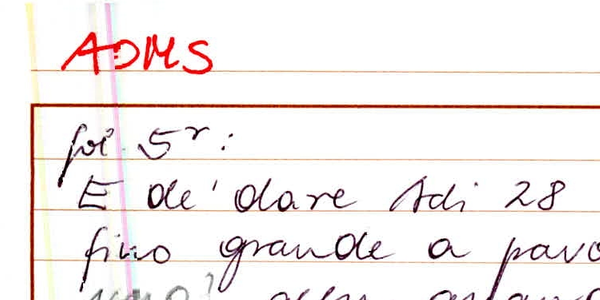 ADMS
fol. 5r:
E de' dare Adi 28
fino grande a pavo